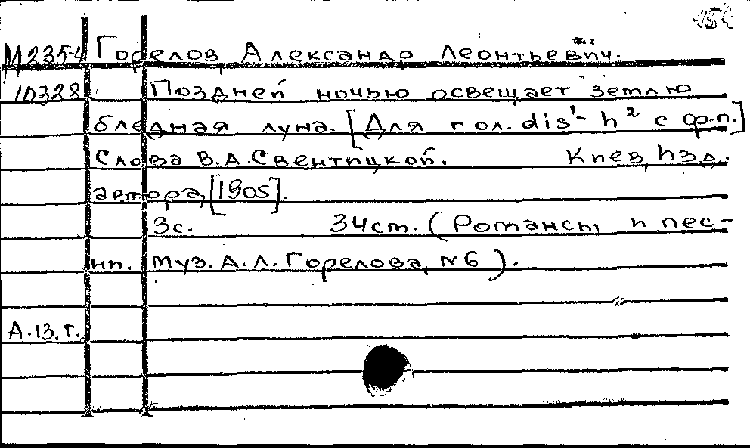 М235-4 Горелов Александр Леонтьевич.
10328 Поздней ночью освещает землю
бледная луна. [Для гол. dis¹- h² с ф.п.]
Слова В.А. Свентицкой. Киев, Изд.
автора, [1905].
3с. 34см. (Романсы и пес-
ни. Муз. А.Л. Горелова, N6).
А.13.г.